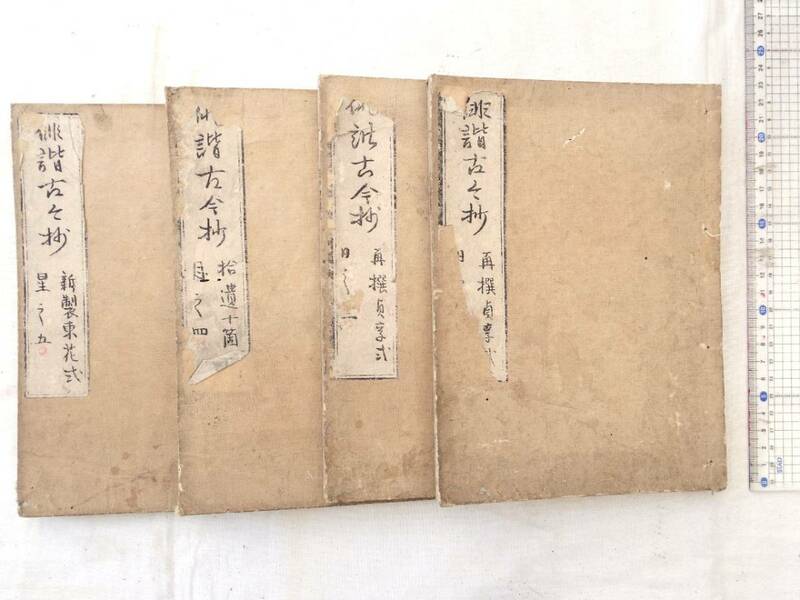 俳諧古今抄
再撰貞享式
諧古今抄
再撰貞享式
日之一
諧古今抄
拾遺十箇
之四
俳諧古今抄
新製東花式
星之五